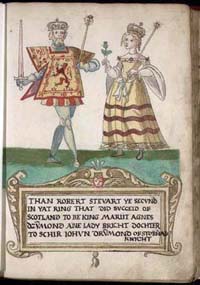 THAN ROBERT STEVART YE SECVND
IN YAT RING THAT DID SVCCEID OF
SCOTLAND TO BE KING MARIIT AGNES
DRVMOND ANE LADY BRICHT DOCHTER
TO SCHIR IOHVN DRVMOND OF
KNICHT